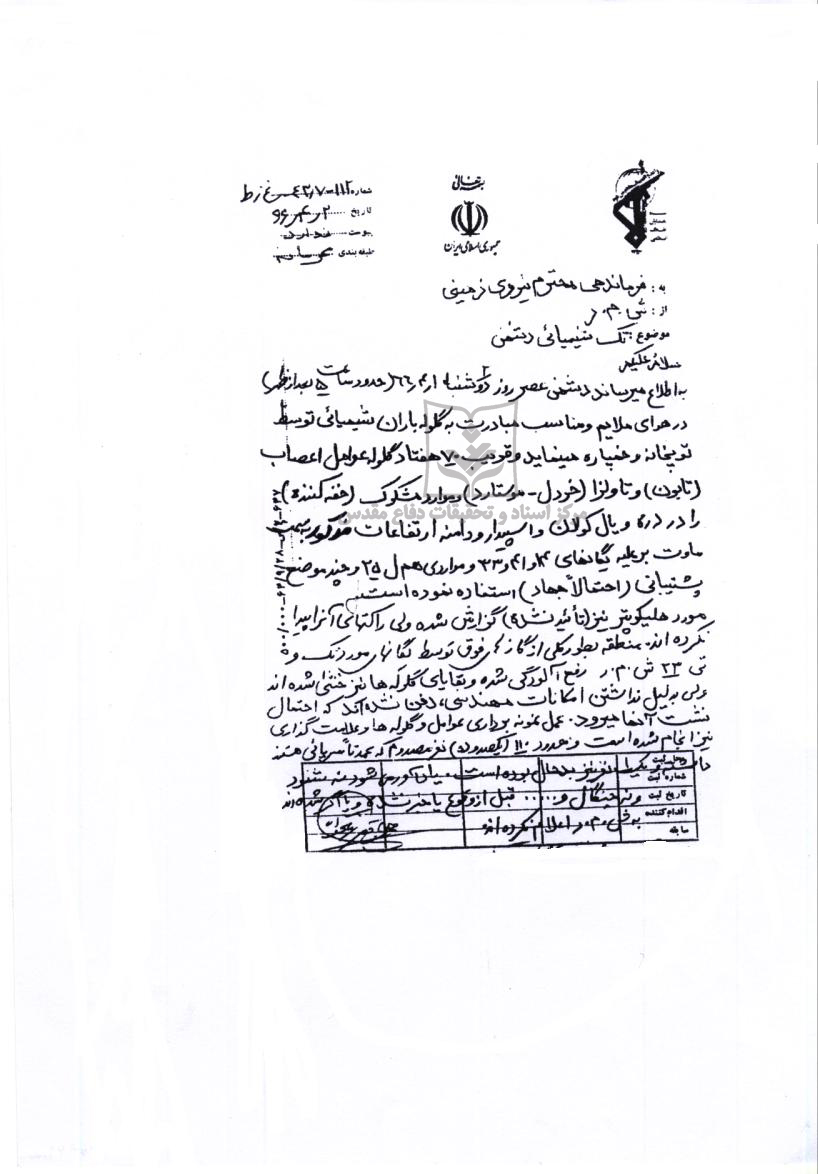 بسمه تعالی
جمهوری اسلامی ایران
شماره
تاریخ ۶۶٫۴٫۲
پیوست ندارد
طبقه بندی محرمانه
به: فرماندهی محترم نیروی زمینی
از: ش.م.ر
موضوع: تک شیمیائی دشمن
سلام علیکم
به اطلاع میرساند دشمن عصر روز دوشنبه (حدود ساعت ۵ بعدازظهر)
در هوای ملایم و مناسب مبادرت به گلوله باران شیمیائی توسط
توپخانه و خمپاره مینماید و قریب ۷۰ هفتاد گلوله عوامل اعصاب
(تابون) و تاولزا (خردل - موستارد) و موارد مشکوک (خفه کننده)
را در دره و یال کولان و اسپیدار و دامنه ارتفاعات مذکور به سمت
ماوت بر علیه یگانهای ۱۴ و ۴۱ و ۳۳ و مواردی هم ل ۲۵ و چند موضع
پشتیبانی (احتمالاً جهاد) استفاده نموده است.
مورد هلیکوپتر نیز (تأئید نشده) گزارش شده ولی راکتهای آنرا پیدا
نکرده اند. منطقه بطور کلی از گازهای فوق توسط یگانهای مورد تک و
تی ۲۳ ش.م.ر رفع آلودگی شده و بقایای گلوله ها نیز خنثی شده اند
ولی به دلیل نداشتن امکانات مهندسی، دفن نشده اند که احتمال
نشت آنها میرود. عمل نمونه برداری عوامل و گلوله ها و علامت گذاری
نیز انجام شده است و حدود ۱۱۰ (یکصدوده) نفر مصدوم که عمدتاً سرپائی هستند
نفر نیز بدحال بوده است. شود نه شنود
و نه جنگال و ..... قبل از وقوع یا خبر نشده و یا اگر شده اند
به ش.م.ر اعلام نکرده اند
محل ثبت
شماره ثبت
تاریخ ثبت
اقدام کننده
سابقه
مرکز اسناد و تحقیقات دفاع مقدس